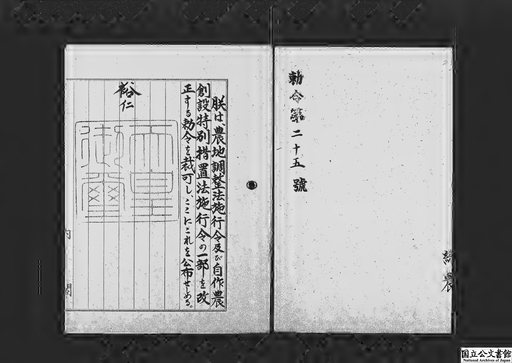 勅令第二十五號
朕は、農地調整法施行令及び自作農
創設特別措置法施行令の一部を改
正する勅令を裁可し、ここにこれを公布せしめる。
裕仁
天皇
御璽
内閣
農
国立公文書館
National Archives of Japan